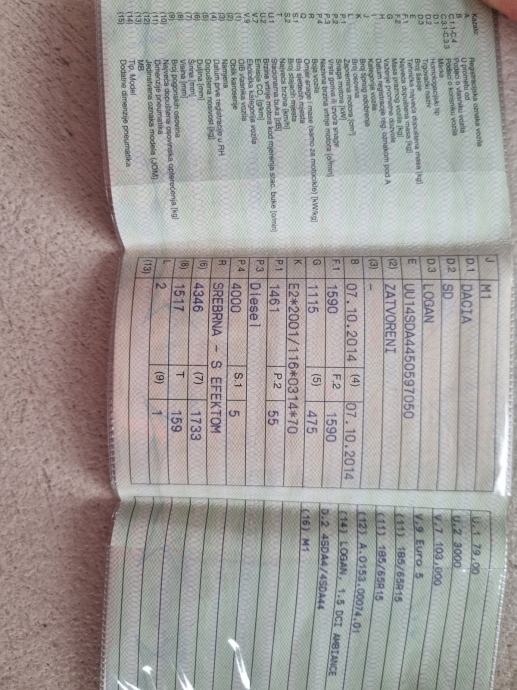 Kazalo:
A Registarska oznaka vozila
C.1.1-C.4 Podaci o vlasniku vozila
D.1 Marka
D.2 Homologacijski tip
D.3 Trgovački naziv
E Broj šasije
F.1 Tehnički najveća dopuštena masa [kg]
F.2 Najveća dopuštena masa [kg]
G Masa praznog vozila [kg]
J Kategorija vozila
L Broj osovina
P.1 Zapremina motora [cm³]
P.2 Snaga motora [kW]
P.3 Vrsta goriva ili izvora snage
P.4 Nazivna brzina vrtnje motora [o/min]
R Boja vozila
Q Omjer snage i mase (samo za motocikle) [kW/kg]
S.1 Broj sjedećih mjesta
S.2 Broj stajaćih mjesta
T Najveća brzina [km/h]
U.1 Stacionarna buka [dB]
U.2 Brzina vrtnje motora kod mjerenja stac. buke [o/min]
V.7 Emisija CO₂ [g/km]
V.9 Ekološka kategorija vozila
(2) Oblik karoserije
(3) Namjena
(4) Datum prve registracije u RH
(5) Dopuštena nosivost [kg]
(6) Duljina [mm]
(7) Širina [mm]
(8) Visina [mm]
(9) Broj pogonskih osovina
(11) Dimenzije pneumatika
(13) MB
(14) Tip, Model
(15) Dodatne dimenzije pneumatika
J M1
D.1 DACIA
D.2 SD
D.3 LOGAN
E UU14SDA4450597050
(2) ZATVORENI
(3) –
B 07.10.2014 (4) 07.10.2014
F.1 1590 F.2 1590
G 1115 (5) 475
K E2*2001/116*0314*70
P.1 1461 P.2 55
P.3 Diesel
P.4 4000 S.1 5
R SREBRNA - S EFEKTOM
(6) 4346 (7) 1733
(8) 1517 T 159
L 2 (9) 1
(13)
U.1 79,00
U.2 3000
V.7 103,000
V.9 Euro 5
(11) 185/65R15
(11) 185/65R15
(12) A.0153.00074.01
(14) LOGAN, 1.5 DCI AMBIANCE
D.2 4SDA4/4SDA44
(16) M1